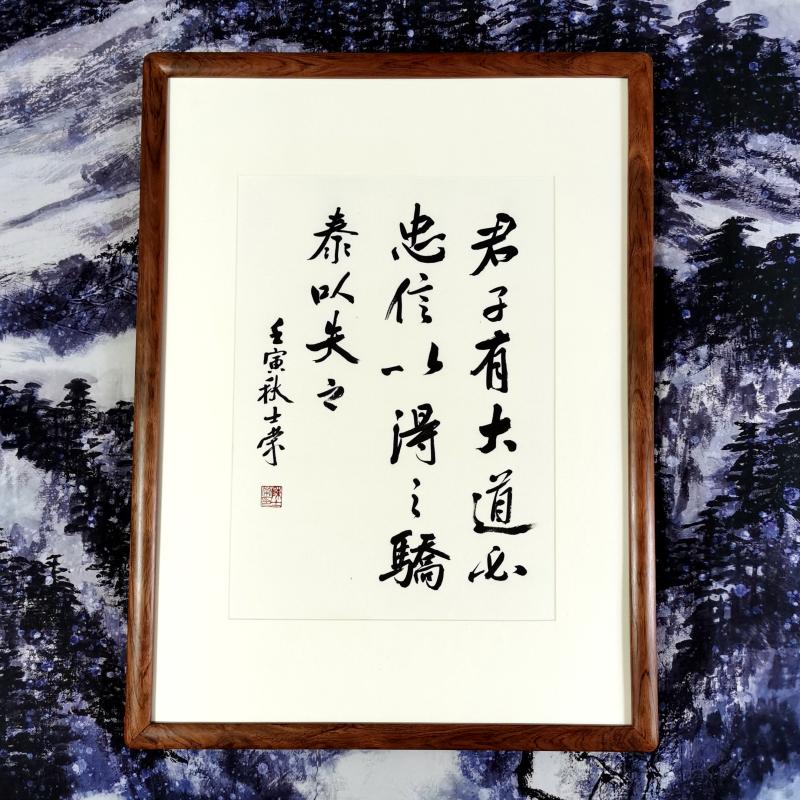 君子有大道必
忠信以得之驕
泰以失之
壬寅秋士榮